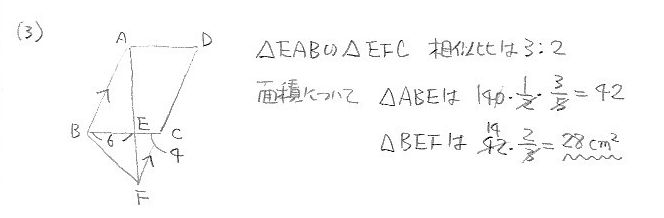 (3)
A D
B 6 E C 4
F
△EAB∽△EFC 相似比は3:2
面積について △ABEは 140・1/2・3/5=42
△BEFは 42・2/3=28cm²
14